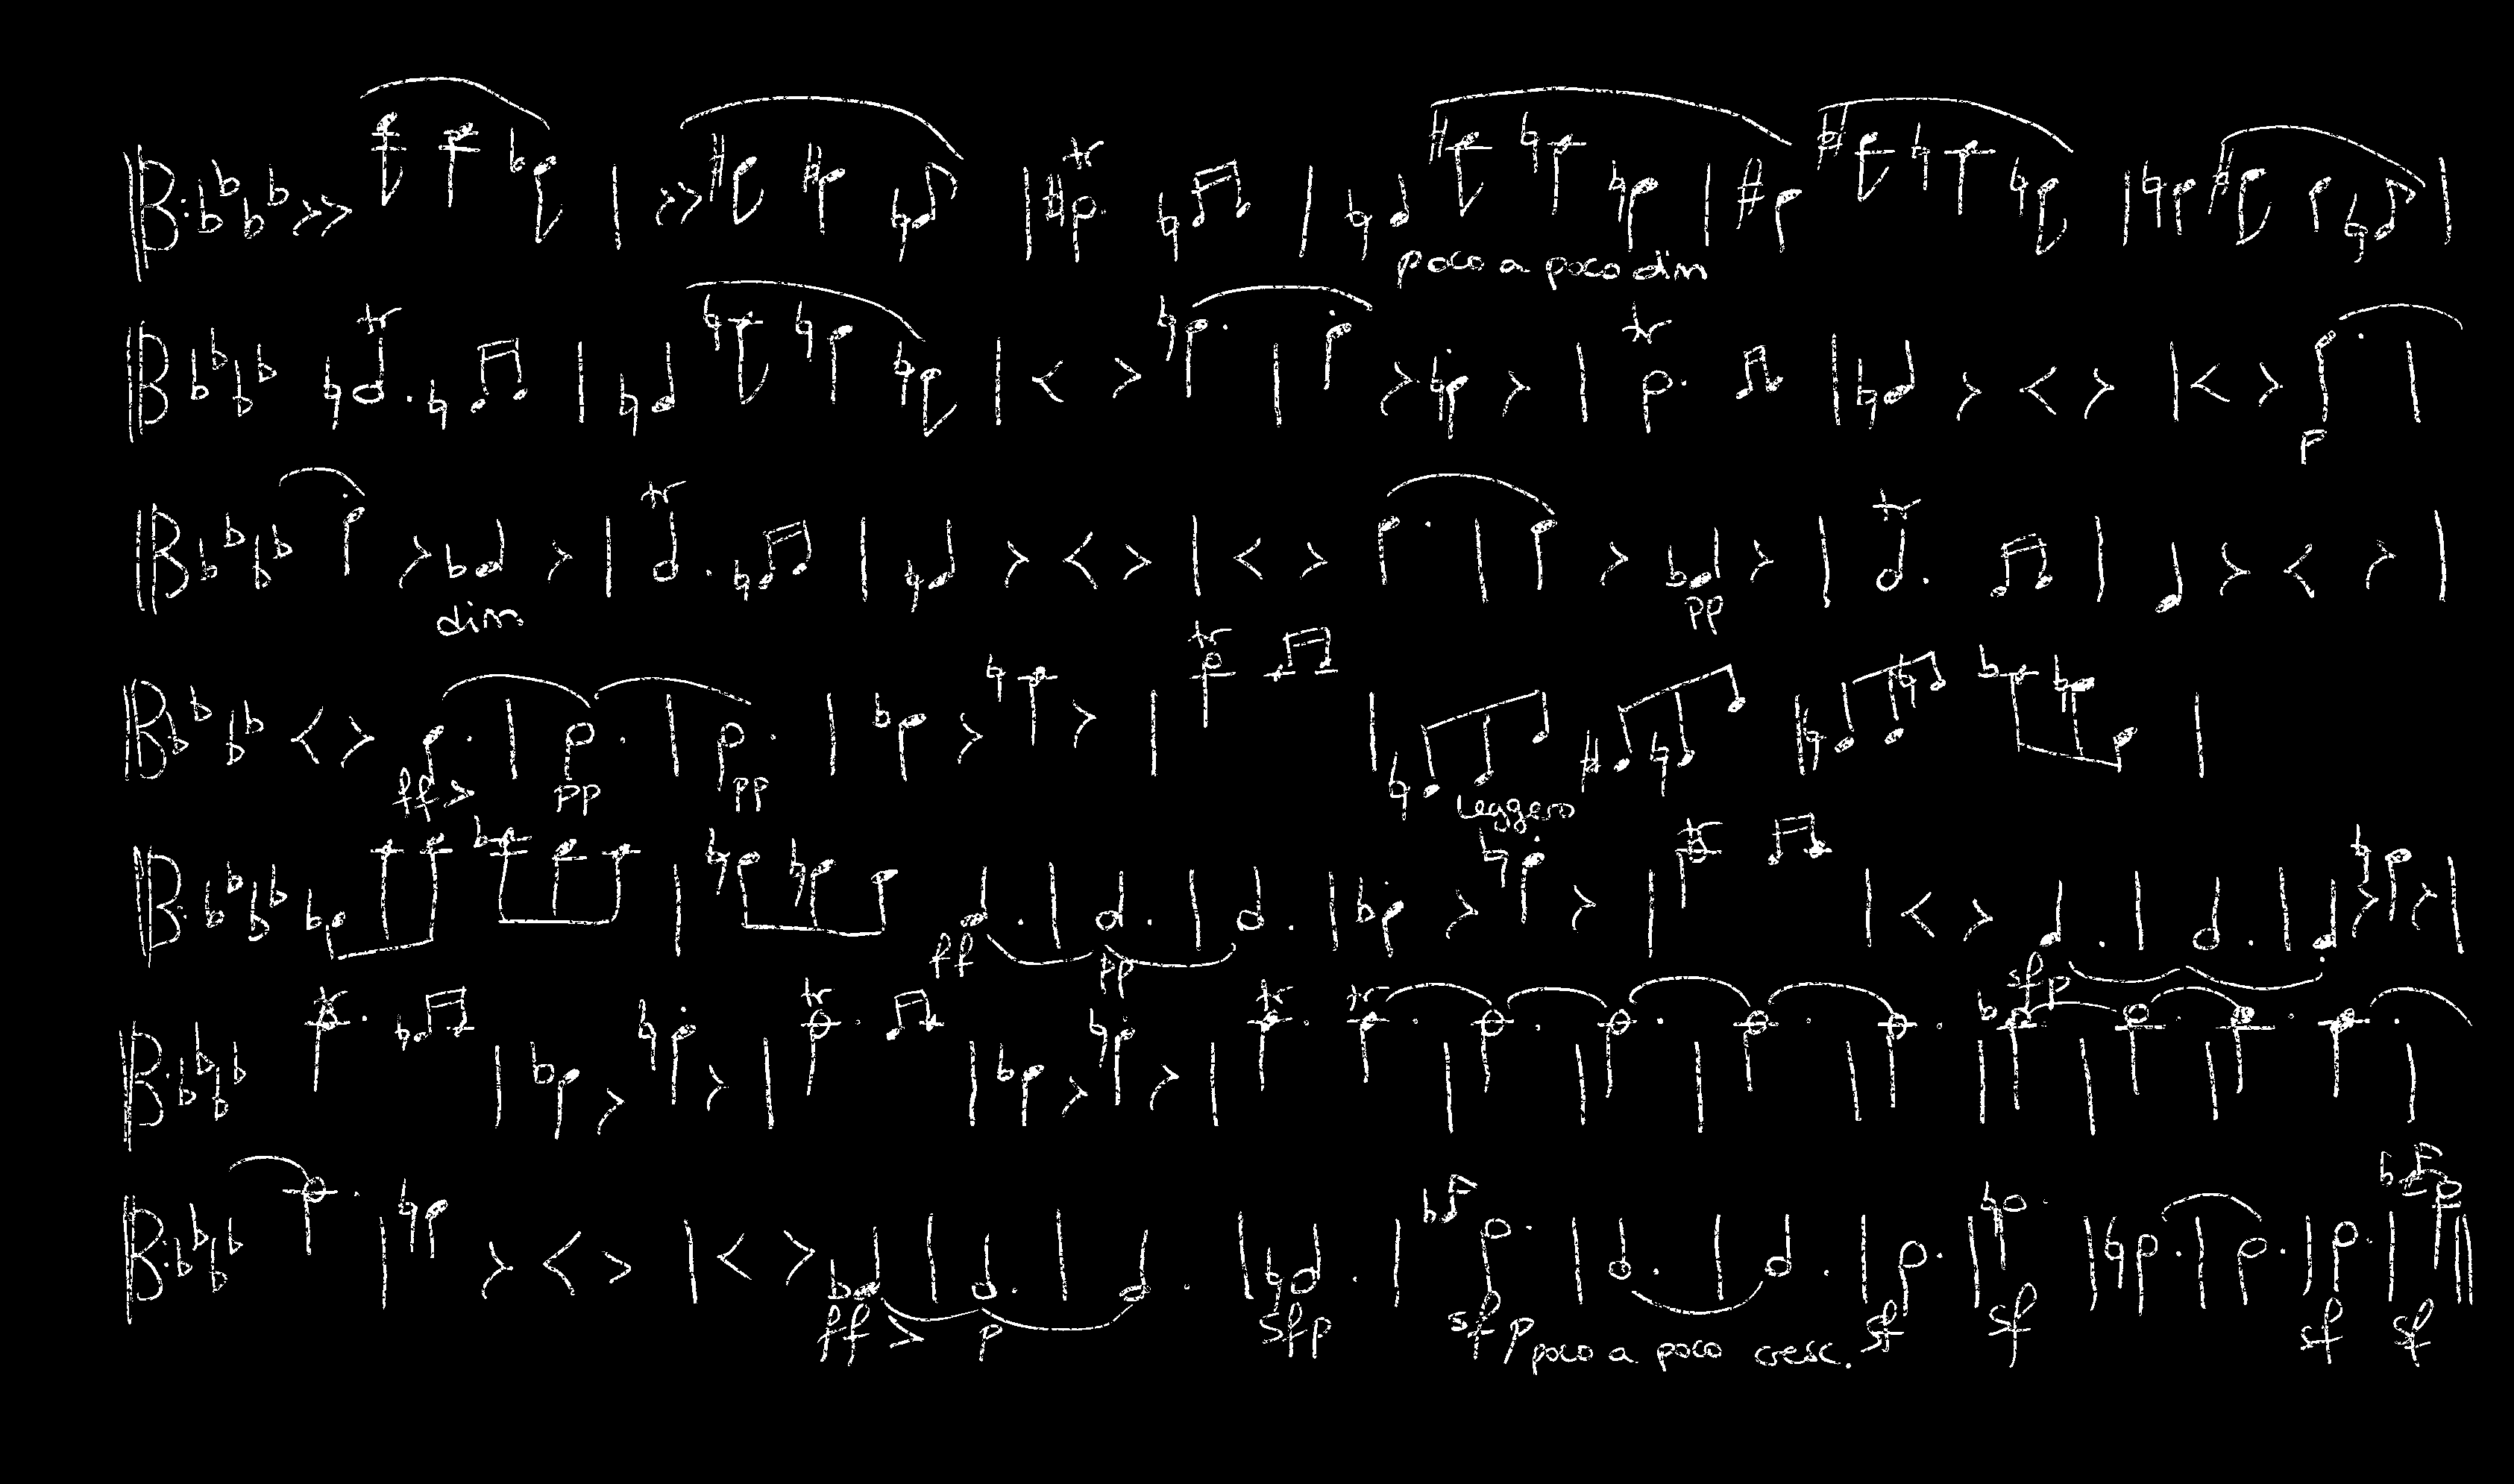 tr
poco a poco dim
tr tr
p
tr tr
dim pp
tr
ff pp pp
leggero
tr
ff pp sfp
tr tr tr tr
ff p sfp sfp poco a poco cresc. sf sf sf sf